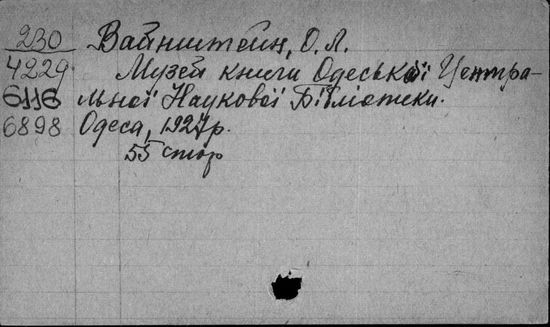 230 Вайнштейн, О.Л.
4229 Музей книги Одеської Центра-
6116 льної Наукової Бібліотеки.
6898 Одеса, 1927р.
55 стор